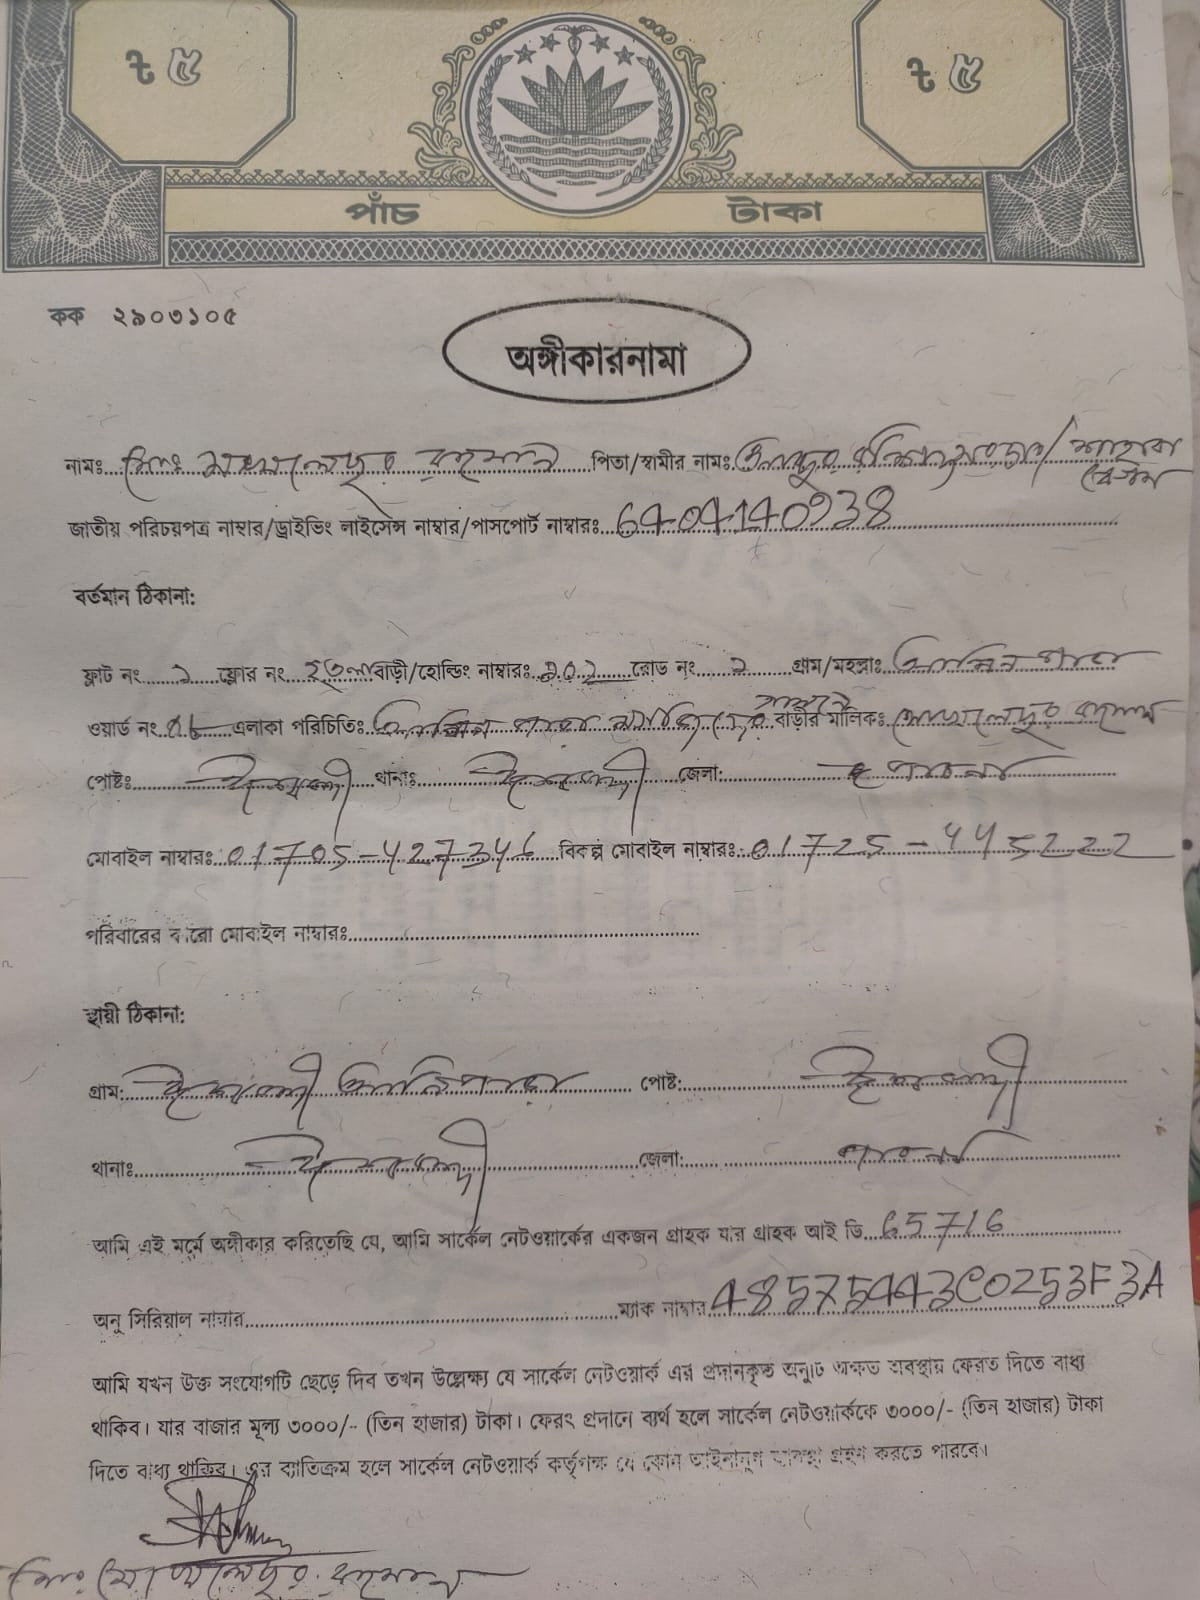 ৳ ৫ ৳ ৫
পাঁচ টাকা
কক ২৯০৩১০৫
অঙ্গীকারনামা
নামঃ মোঃ মোখলেছুর রহমান পিতা/স্বামীর নামঃ
বেগম
জাতীয় পরিচয়পত্র নাম্বার/ড্রাইভিং লাইসেন্স নাম্বার/পাসপোর্ট নাম্বারঃ 6404140938
বর্তমান ঠিকানা:
ফ্লাট নং ১ ফ্লোর নং ২তলা বাড়ী/হোল্ডিং নাম্বারঃ রোড নং গ্রাম/মহল্লাঃ
ওয়ার্ড নং এলাকা পরিচিতিঃ বাড়ীর মালিকঃ মোখলেছুর রহমান
পোষ্টঃ ঈশ্বরদী থানাঃ ঈশ্বরদী জেলা: পাবনা
মোবাইল নাম্বারঃ 01705-427346 বিকল্প মোবাইল নাম্বারঃ 01725-445222
পরিবারের কারো মোবাইল নাম্বারঃ
স্থায়ী ঠিকানা:
গ্রাম: ঈশ্বরদী পোষ্ট: ঈশ্বরদী
থানাঃ ঈশ্বরদী জেলা: পাবনা
আমি এই মর্মে অঙ্গীকার করিতেছি যে, আমি সার্কেল নেটওয়ার্কের একজন গ্রাহক যার গ্রাহক আই ডি 65716
অনু সিরিয়াল নাম্বার ম্যাক নাম্বার 48575443C0253F3A
আমি যখন উক্ত সংযোগটি ছেড়ে দিব তখন উল্লেক্ষ্য যে সার্কেল নেটওয়ার্ক এর প্রদানকৃত অনুটি অক্ষত অবস্থায় ফেরত দিতে বাধ্য
থাকিব। যার বাজার মূল্য ৩০০০/- (তিন হাজার) টাকা। ফেরৎ প্রদানে ব্যর্থ হলে সার্কেল নেটওয়ার্ককে ৩০০০/- (তিন হাজার) টাকা
দিতে বাধ্য থাকিব। এর ব্যতিক্রম হলে সার্কেল নেটওয়ার্ক কর্তৃপক্ষ যে কোন আইনানুগ ব্যবস্থা গ্রহন করতে পারবে।
মোঃ মোখলেছুর রহমান